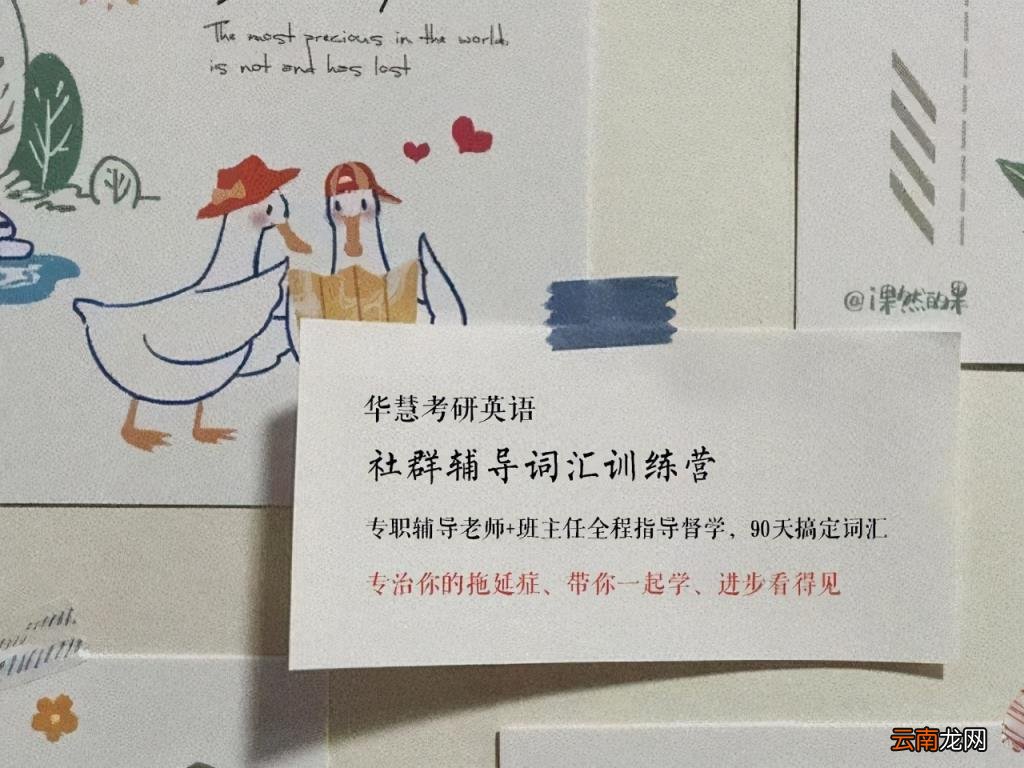 The most precious in the world,
is not and has lost
@i果然的果
华慧考研英语
社群辅导词汇训练营
专职辅导老师+班主任全程指导督学，90天搞定词汇
专治你的拖延症、带你一起学、进步看得见
云南龙网